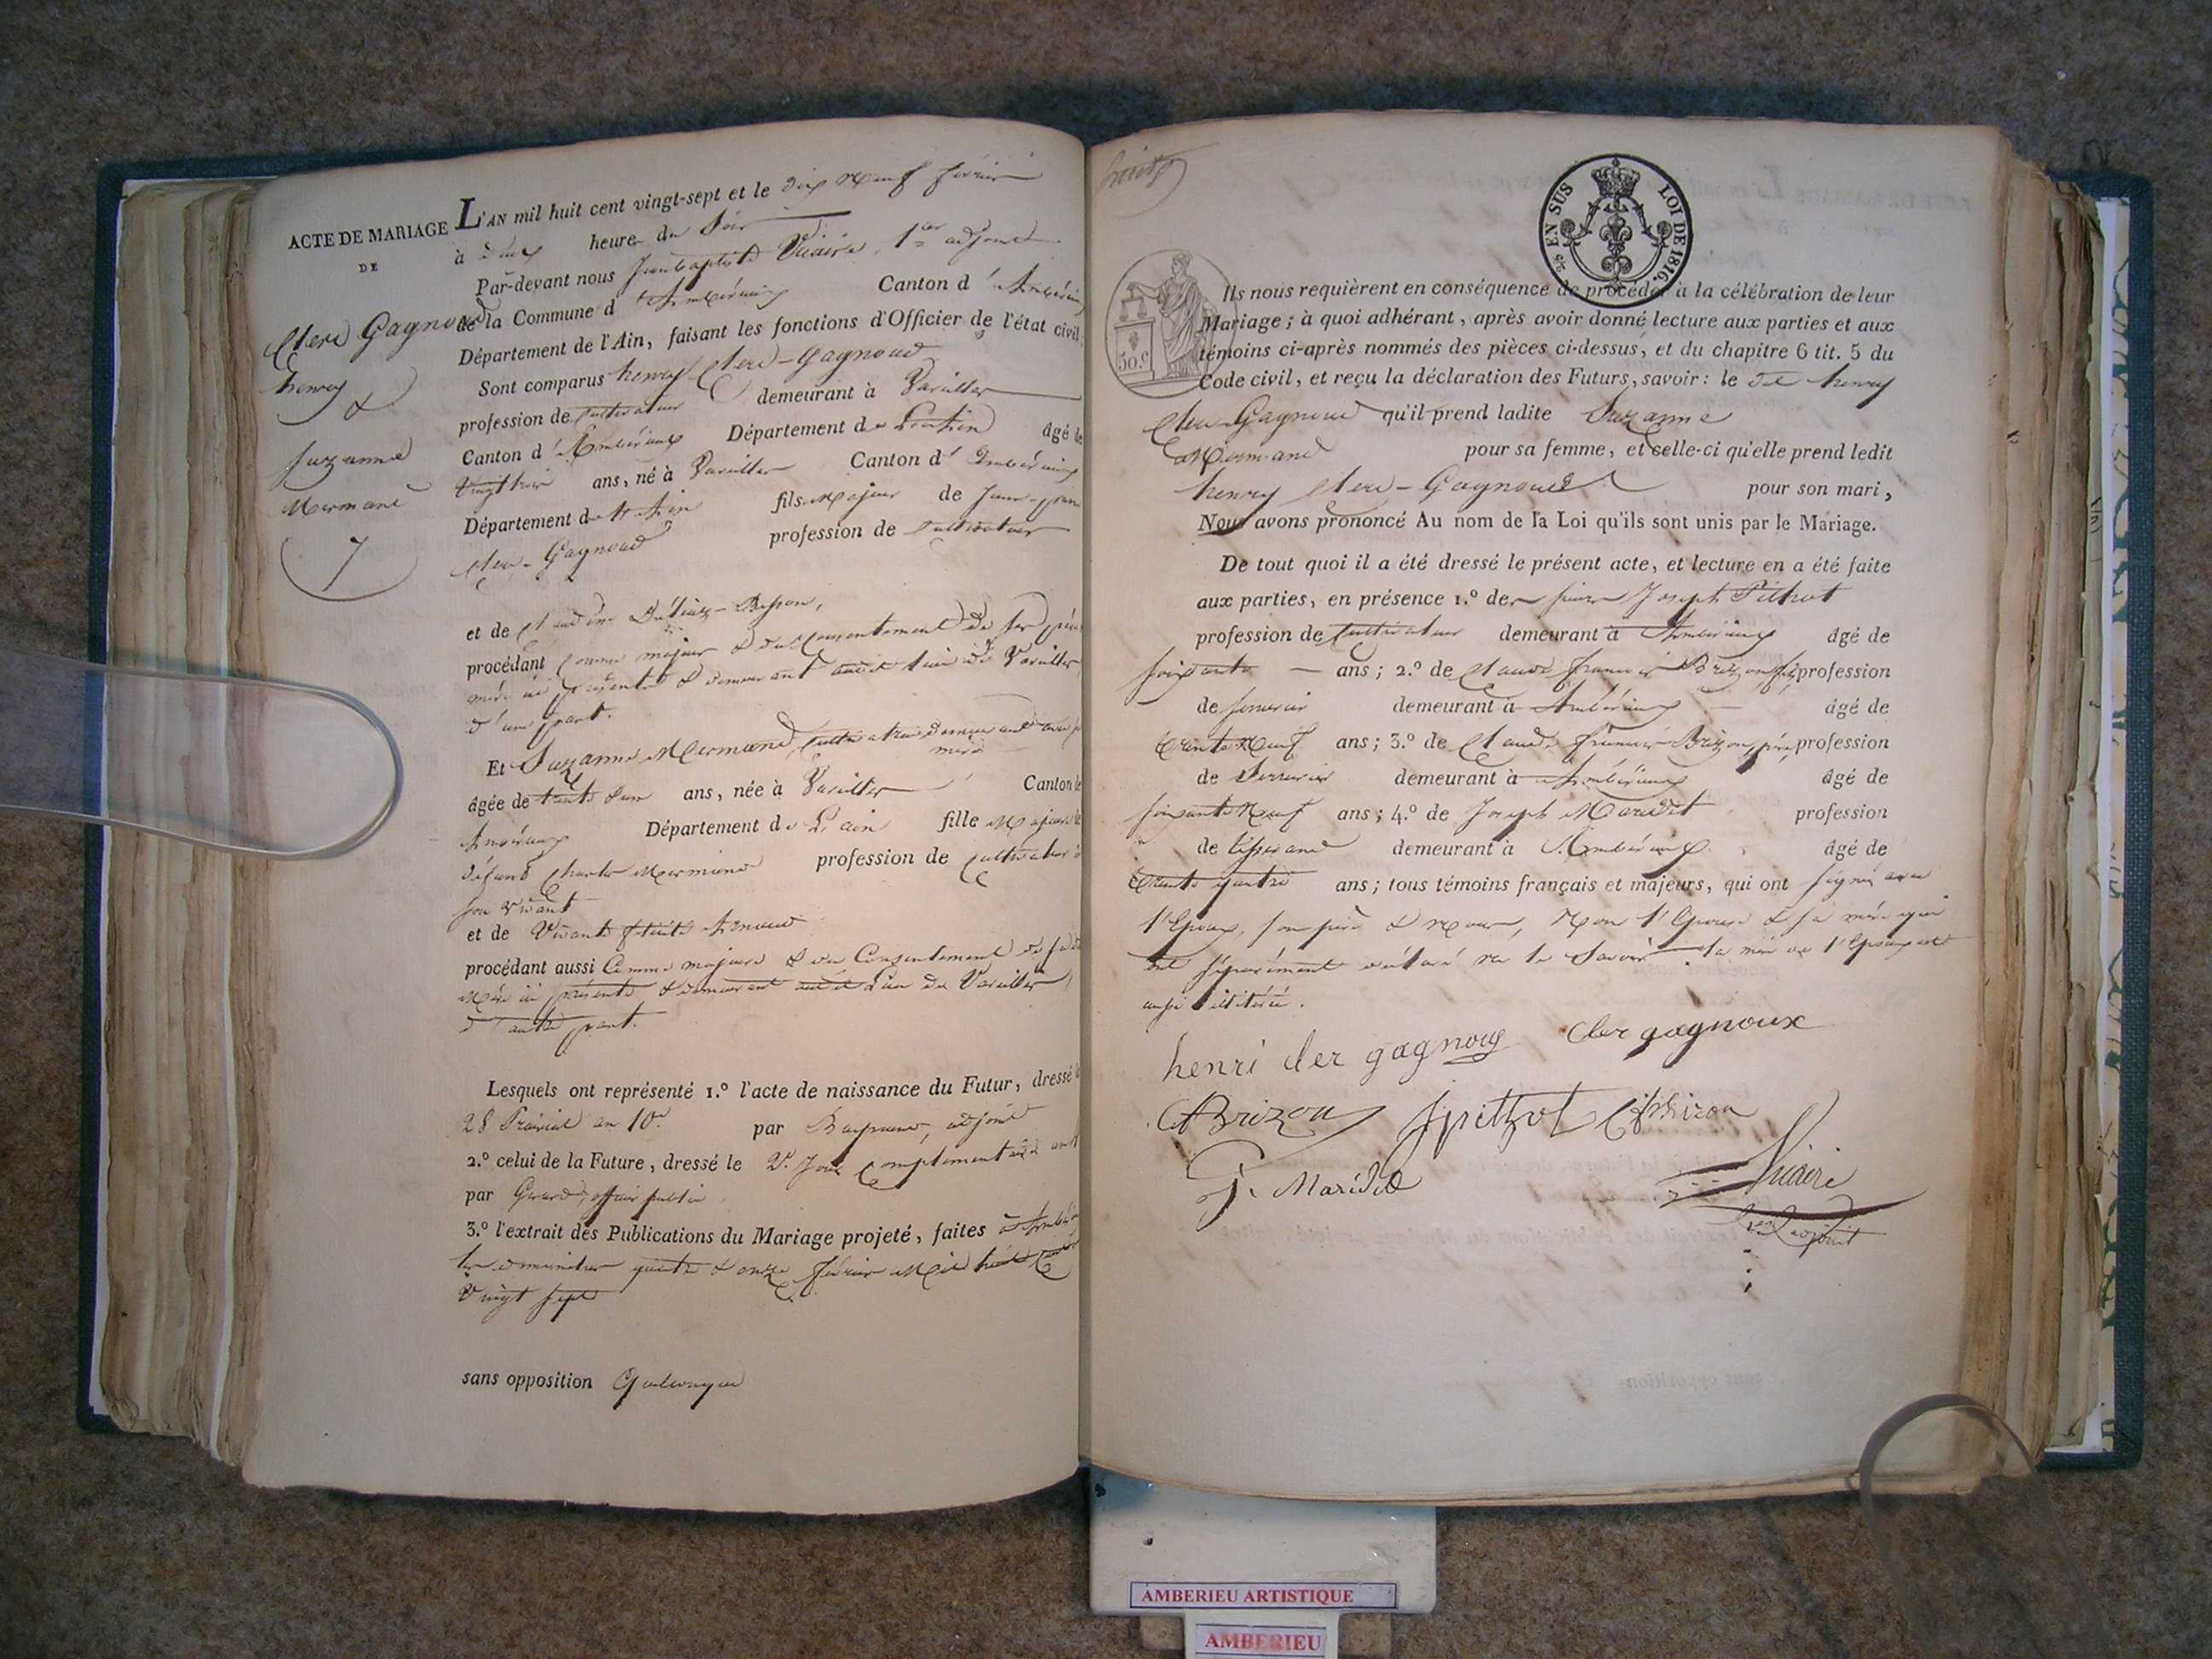 ACTE DE MARIAGE
DE
Clerc Gagnoud
henry
&
Suzanne
Mermand
7
L'AN mil huit cent vingt-sept et le dix Neuf février
à deux heures du Soir
Par-devant nous Jean baptiste Viciaire, 1er adjoint
de la Commune d'Ambérieux Canton d'Ambérieux
Département de l'Ain, faisant les fonctions d'Officier de l'état civil
Sont comparus henry Clerc-Gagnoud
profession de cultivateur demeurant à Vareilles
Canton d'Ambérieux Département de L'ain âgé de
ans, né à Vareilles Canton d'Ambérieux
Département de L'ain fils Majeur de
Clerc-Gagnoud profession de cultivateur
et de Claudine
procédant comme majeur & du Consentement de ses père
mère ici présents & demeurant audit lieu de Vareilles
d'une part.
Et Suzanne Mermand, cultivatrice demeurant avec sa
mère
âgée de trente & un ans, née à Vareilles Canton de
Ambérieux Département de L'ain fille Majeure de
défunt Charles Mermand profession de cultivateur
son vivant
et de Vivante
procédant aussi Comme majeure & du Consentement de sa
Mère ici présente & demeurant audit Lieu de Vareilles,
d'autre part.
Lesquels ont représenté 1.º l'acte de naissance du Futur, dressé le
28 Prairial an 10e par adjoint
2.º celui de la Future, dressé le 2e Jour Complémentaire
par Girard, officier public
3.º l'extrait des Publications du Mariage projeté, faites à
les dimanches quatre & onze février Mil huit Cent
Vingt sept
sans opposition Quelconque
EN SUS
LOI DE 1816.
50.c
Ils nous requièrent en conséquence de procéder à la célébration de leur
Mariage; à quoi adhérant, après avoir donné lecture aux parties et aux
témoins ci-après nommés des pièces ci-dessus, et du chapitre 6 tit. 5 du
Code civil, et reçu la déclaration des Futurs, savoir: le dit henry
Clerc-Gagnoud qu'il prend ladite Suzanne
Mermand pour sa femme, et celle-ci qu'elle prend ledit
henry Clerc-Gagnoud pour son mari,
Nous avons prononcé Au nom de la Loi qu'ils sont unis par le Mariage.
De tout quoi il a été dressé le présent acte, et lecture en a été faite
aux parties, en présence 1.º de Joseph Pithot
profession de Cultivateur demeurant à Ambérieux âgé de
soixante ans; 2.º de Claude françois Brizon fils profession
de serrurier demeurant à Ambérieux âgé de
trente Neuf ans; 3.º de Claude françois Brizon, père profession
de Serrurier demeurant à Ambérieux âgé de
soixante Neuf ans; 4.º de Joseph Maridet profession
de tisserand demeurant à Ambérieux âgé de
trente quatre ans; tous témoins français et majeurs, qui ont signé avec
l'Epoux, son père & Nous, Non l'Epouse & sa mère qui
ont séparément déclaré ne le Savoir la mère de l'Epoux
aussi illitérée.
henri cler gagnoux cler gagnoux
Brizon Jpithot
J. Maridet Viciaire
1er adjoint
AMBERIEU ARTISTIQUE
AMBERIEU